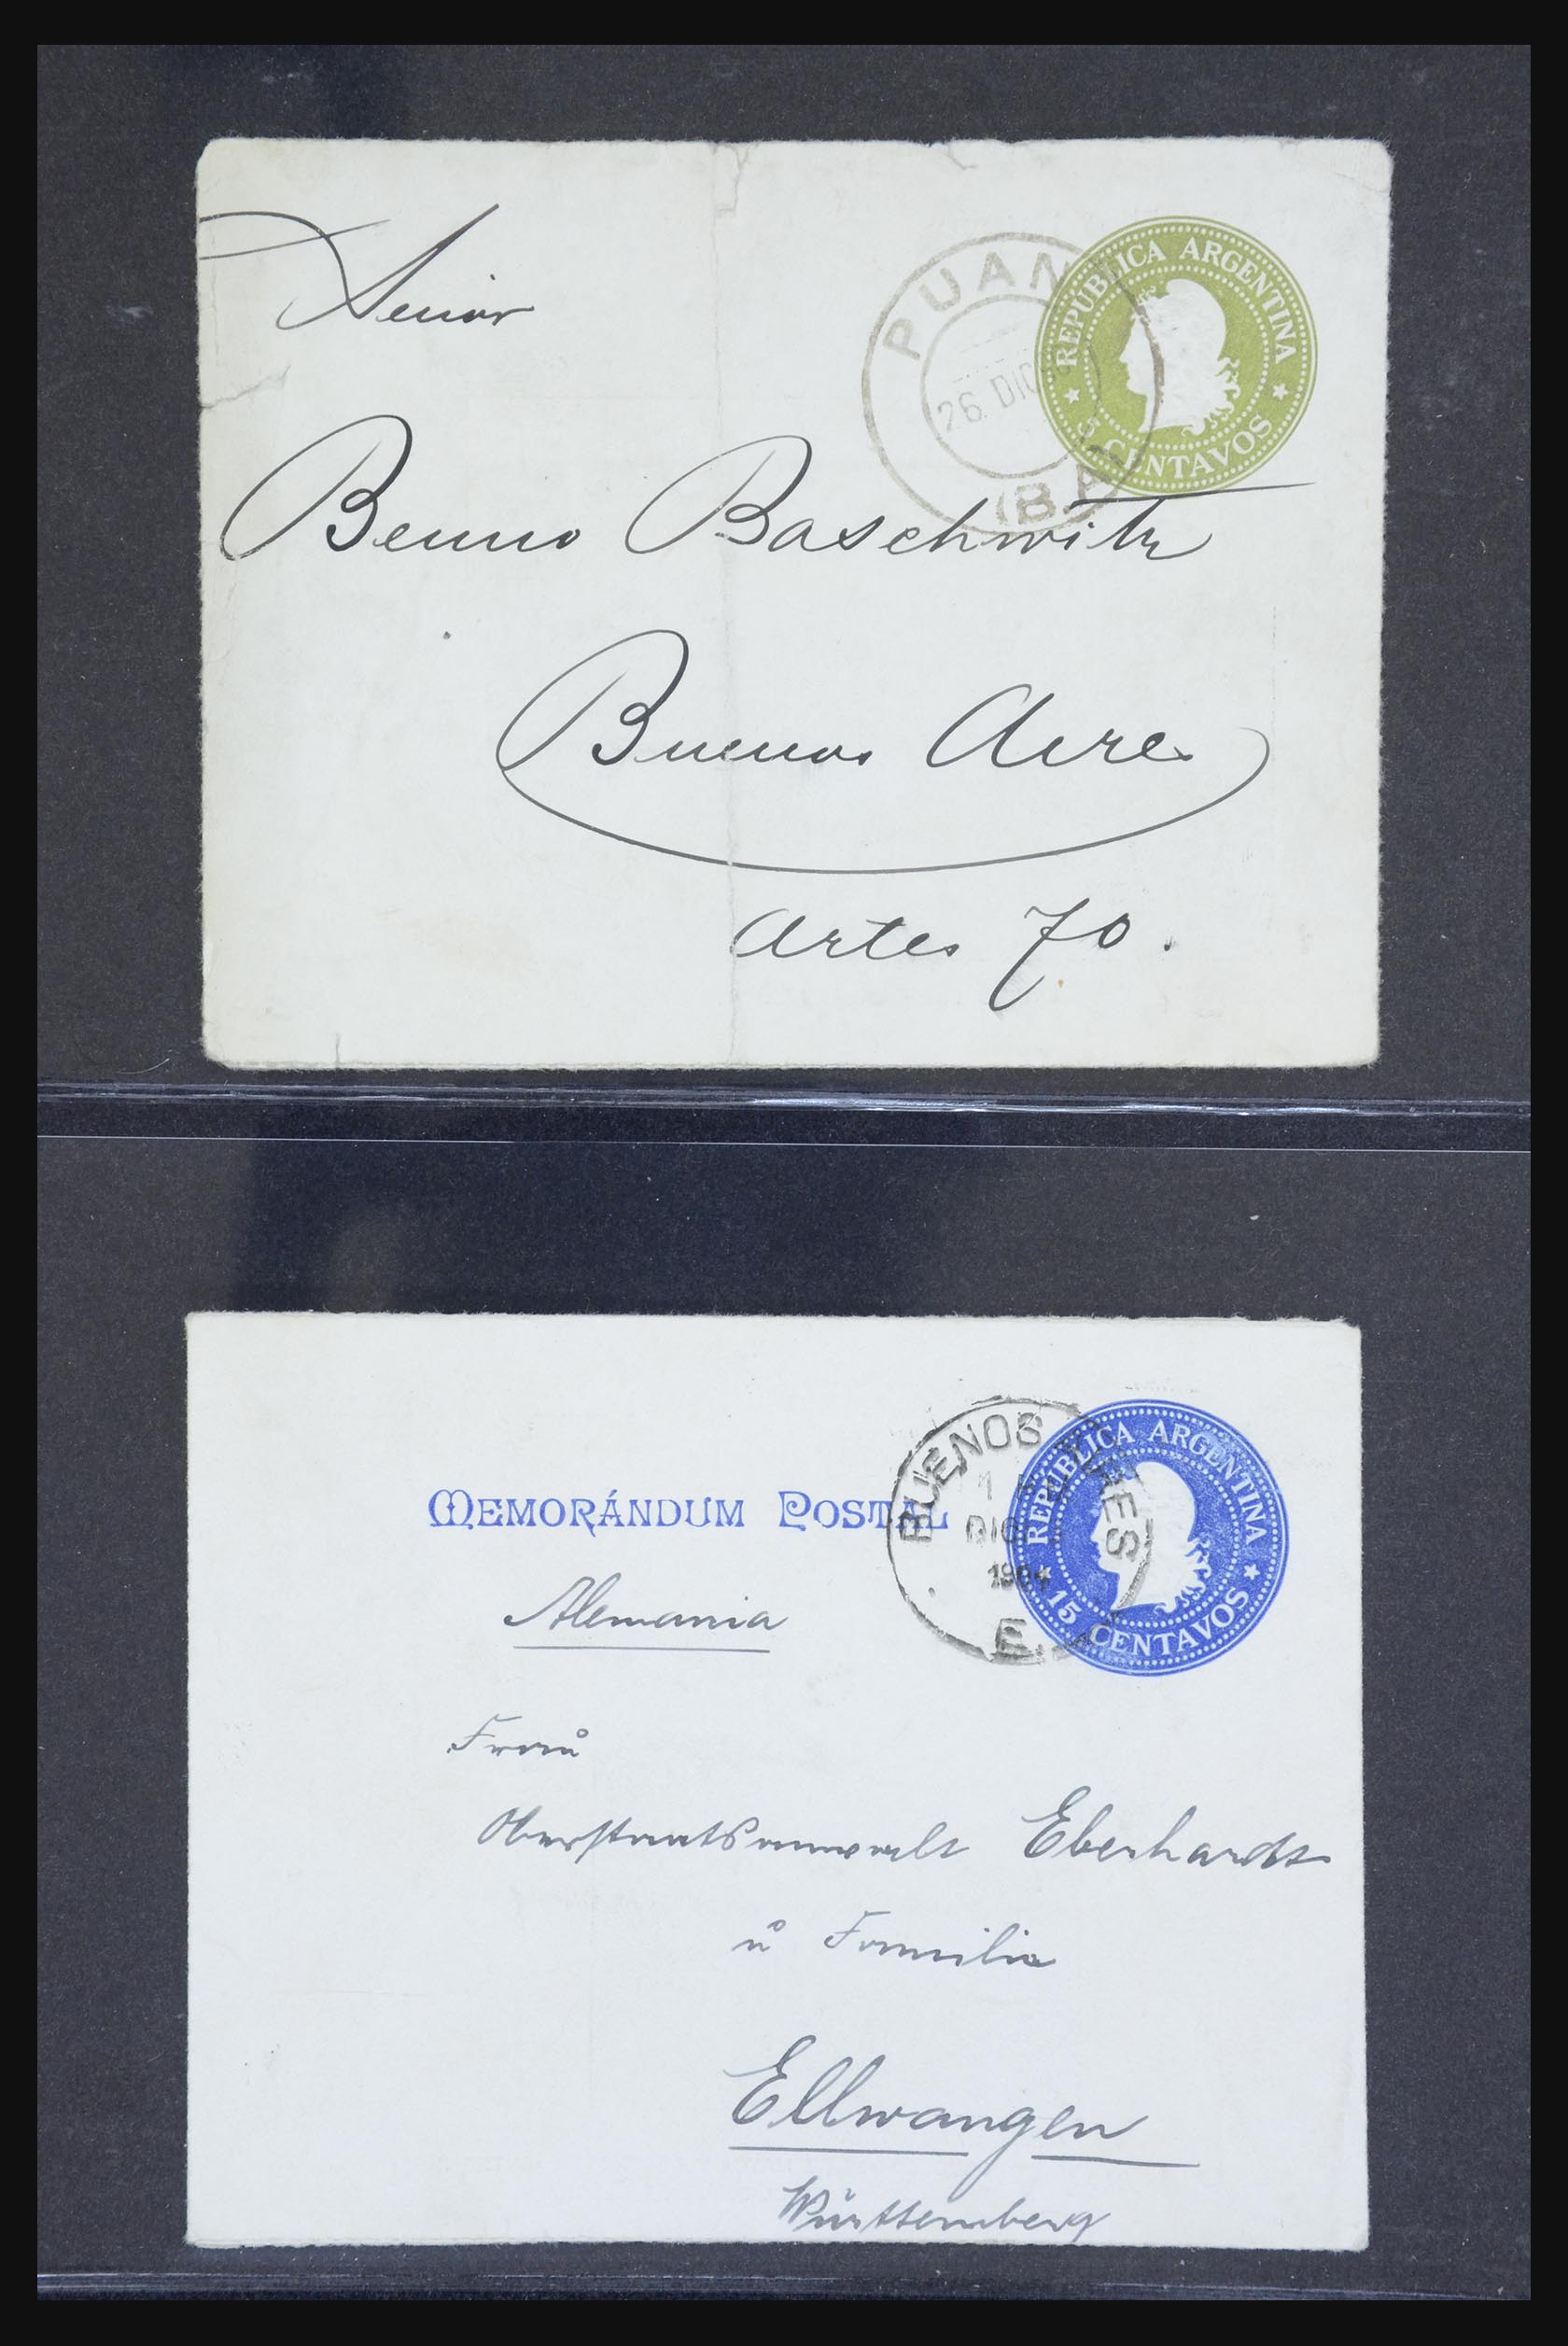 Senior
REPÚBLICA ARGENTINA
5 CENTAVOS
PUAN
26 DIC
(B.A
Benno Baschwitz
Buenos Aires
Artes 70.
MEMORÁNDUM POSTAL
REPÚBLICA ARGENTINA
15 CENTAVOS
BUENOS AIRES
DIC
1904
E.
Alemania
Frau
Oberstaatsanwalt Eberhardt
u Familie
Ellwangen
Württemberg